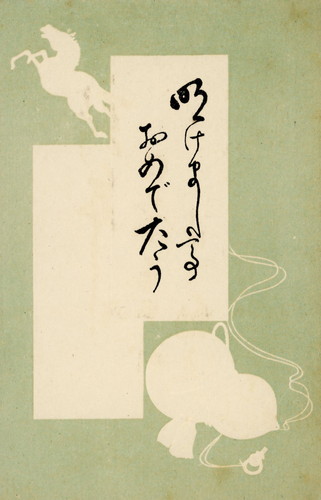 明けまして
おめでたう